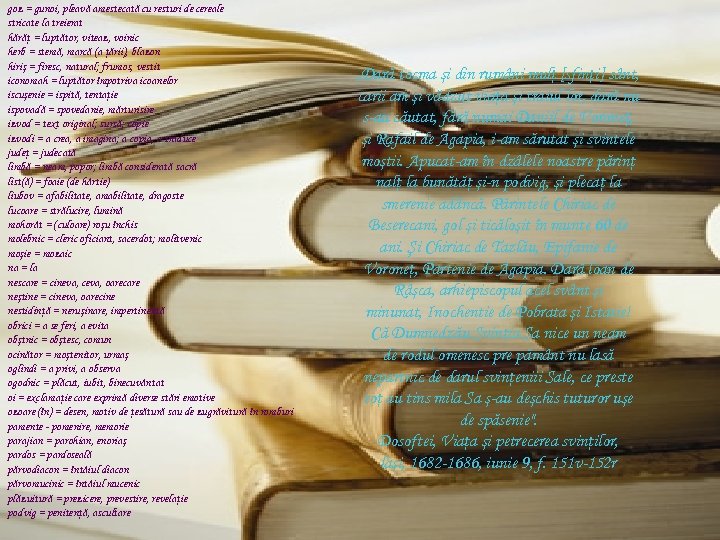 goz = gunoi, pleavă amestecată cu resturi de cereale
stricate la treierat
hărăț = luptător, viteaz, voinic
herb = stemă, marcă (a țării), blazon
hiriș = firesc, natural; frumos, vestit
iconomah = luptător împotriva icoanelor
iscușenie = ispită, tentație
ispovadă = spovedanie, mărturisire
izvod = text original; sursă; copie
izvodi = a crea, a imagina; a copia, a traduce
județ = judecată
limbă = neam, popor; limbă considerată sacră
list(ă) = foaie (de hârtie)
liubov = afabilitate, amabilitate, dragoste
lucoare = strălucire, lumină
mohorât = (culoare) roșu închis
molebnic = cleric oficiant, sacerdot; molitvenic
moșie = mozaic
na = la
nescare = cineva, ceva, oarecare
neștine = cineva, oarecine
nestidință = nerușinare, impertinență
obrici = a se feri, a evita
obștnic = obștesc, comun
ocinător = moștenitor, urmaș
oglindi = a privi, a observa
ogodnic = plăcut, iubit, binecuvântat
oi = exclamație care exprimă diverse stări emotive
ozoare (în) = desen, motiv de țesătură sau de zugrăvitură în romburi
pamente - pomenire, memorie
parajian = parohian, enoriaș
pardos = pardoseală
părvodiacon = întâiul diacon
părvomucinic = întâiul mucenic
plăzuitură = prezicere, prevestire, revelație
podvig = penitență, ascultare
"Dară tocma și din rumâni mulți [sfinți] sânt,
carii am și văzut viața și traiul lor, dară nu
s-au căutat, fără numai Daniil de Voroneț
și Rafail de Agapia, i-am sărutat și svintele
moștii. Apucat-am în dzâlele noastre părinț
nalț la bunătăț și-n podvig, și plecaț la
smerenie adâncă. Părintele Chiriac de
Beserecani, gol și ticăloșit în munte 60 de
ani. Și Chiriac de Tazlău, Epifanie de
Voroneț, Partenie de Agapia. Dară Ioan de
Râșca, arhiepiscopul acel svânt și
minunat, Inochentie de Pobrata și Istatie!
Că Dumnedzău Svinția Sa nice un neam
de rodul omenesc pre pământ nu lasă
nepărtnic de darul svințeniii Sale, ce preste
toț au tins mila Sa ș-au deșchis tuturor ușe
de spăsenie".
Dosoftei, Viața și petrecerea svinților,
Iași, 1682-1686, iunie 9, f. 151v-152r